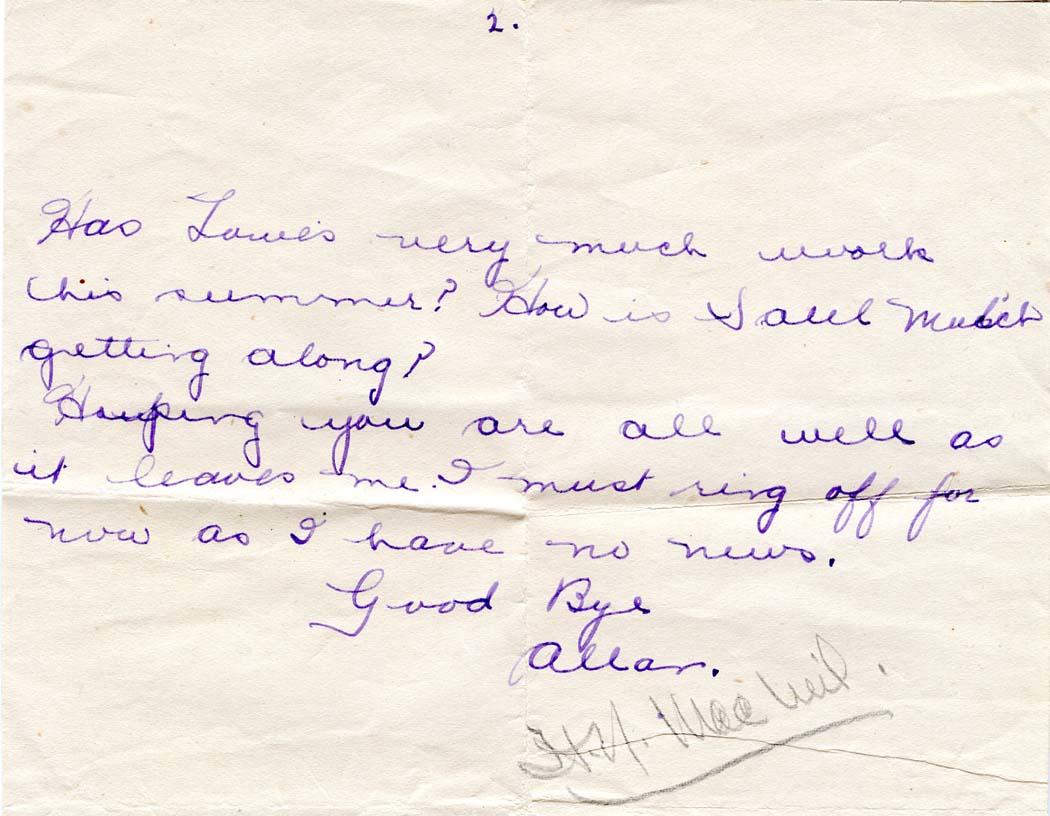 2.
Has Louis very much work
this summer? How is
getting along?
Houping you are all well as
it leaves me. I must ring off for
now as I have no news.
Good Bye
Allan.
MacNeil.